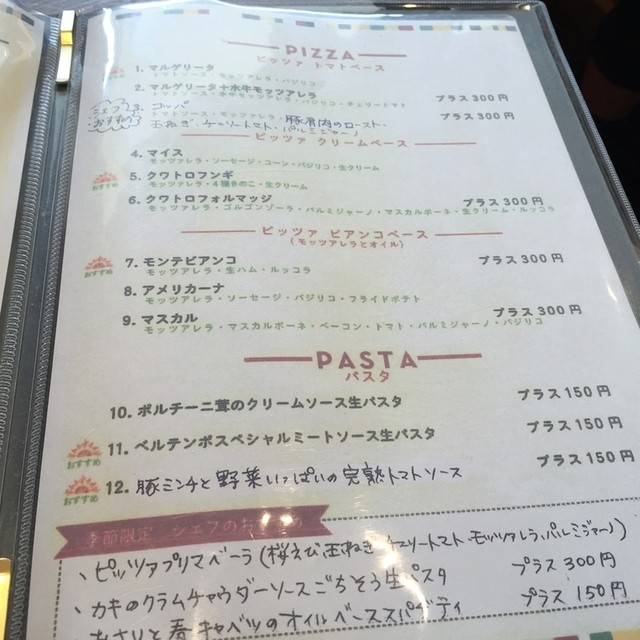 PIZZA
ピッツァ トマトベース
おすすめ
1. マルゲリータ
トマトソース・モッツァレラ・バジリコ
2. マルゲリータ＋水牛モッツァレラ プラス300円
モッツァレラ・バジリコ・チェリートマト
おすすめ コッパ 豚肩肉のロースト プラス300円
玉ねぎ・チェリートマト・パルミジャーノ)
ピッツァ クリームベース
4. マイス
モッツァレラ・ソーセージ・コーン・バジリコ・生クリーム
おすすめ
5. クワトロフンギ
モッツァレラ・4種きのこ・生クリーム
6. クワトロフォルマッジ プラス300円
モッツァレラ・ゴルゴンゾーラ・パルミジャーノ・マスカルポーネ・生クリーム・ルッコラ
ピッツァ ビアンコベース
(モッツァレラとオイル)
おすすめ
7. モンテビアンコ プラス300円
モッツァレラ・生ハム・ルッコラ
8. アメリカーナ
モッツァレラ・ソーセージ・バジリコ・フライドポテト
9. マスカル プラス300円
モッツァレラ・マスカルポーネ・ベーコン・トマト・パルミジャーノ・バジリコ
PASTA
パスタ
10. ポルチーニ茸のクリームソース生パスタ プラス150円
おすすめ
11. ベルテンポスペシャルミートソース生パスタ プラス150円
おすすめ
12. 豚ミンチと野菜いっぱいの完熟トマトソース プラス150円
季節限定 シェフのおすすめ
、ピッツァプリマベーラ(桜えび、玉ねぎ、チェリートマト、モッツァレラ、パルミジャーノ)
プラス300円
、カキのクラムチャウダーソースごちそう生パスタ プラス150円
あさりと春キャベツのオイルベーススパゲティ